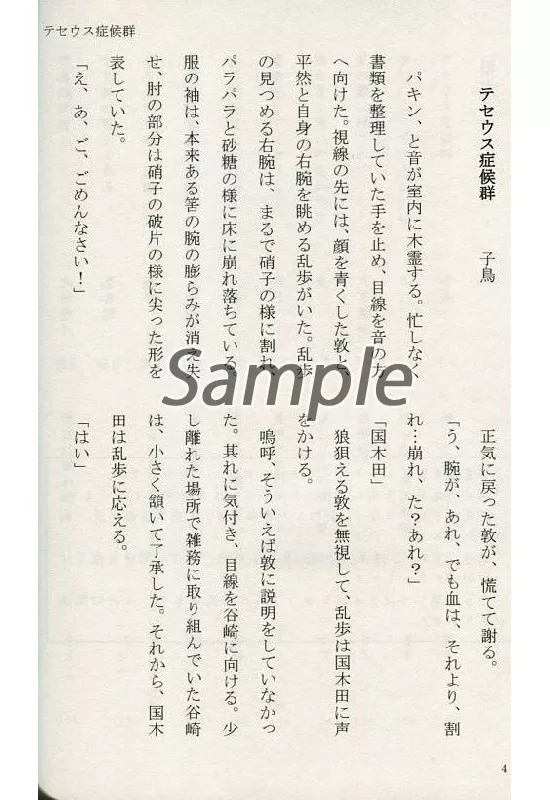 テセウス症候群
テセウス症候群　子鳥
パキン、と音が室内に木霊する。忙しなく
書類を整理していた手を止め、目線を音の方
へ向けた。視線の先には、顔を青くした敦と、
平然と自身の右腕を眺める乱歩がいた。乱歩
の見つめる右腕は、まるで硝子の様に割れ、
パラパラと砂糖の様に床に崩れ落ちている。
服の袖は、本来ある筈の腕の膨らみが消え失
せ、肘の部分は硝子の破片の様に尖った形を
表していた。
「え、あ、ご、ごめんなさい！」
正気に戻った敦が、慌てて謝る。
「う、腕が、あれ、でも血は、それより、割
れ…崩れ、た？あれ？」
「国木田」
狼狽える敦を無視して、乱歩は国木田に声
をかける。
嗚呼、そういえば敦に説明をしていなかっ
た。其れに気付き、目線を谷崎に向ける。少
し離れた場所で雑務に取り組んでいた谷崎
は、小さく頷いて了承した。それから、国木
田は乱歩に応える。
「はい」
4
Sample